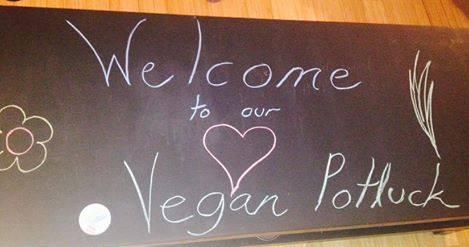 Welcome
to our
Vegan Potluck